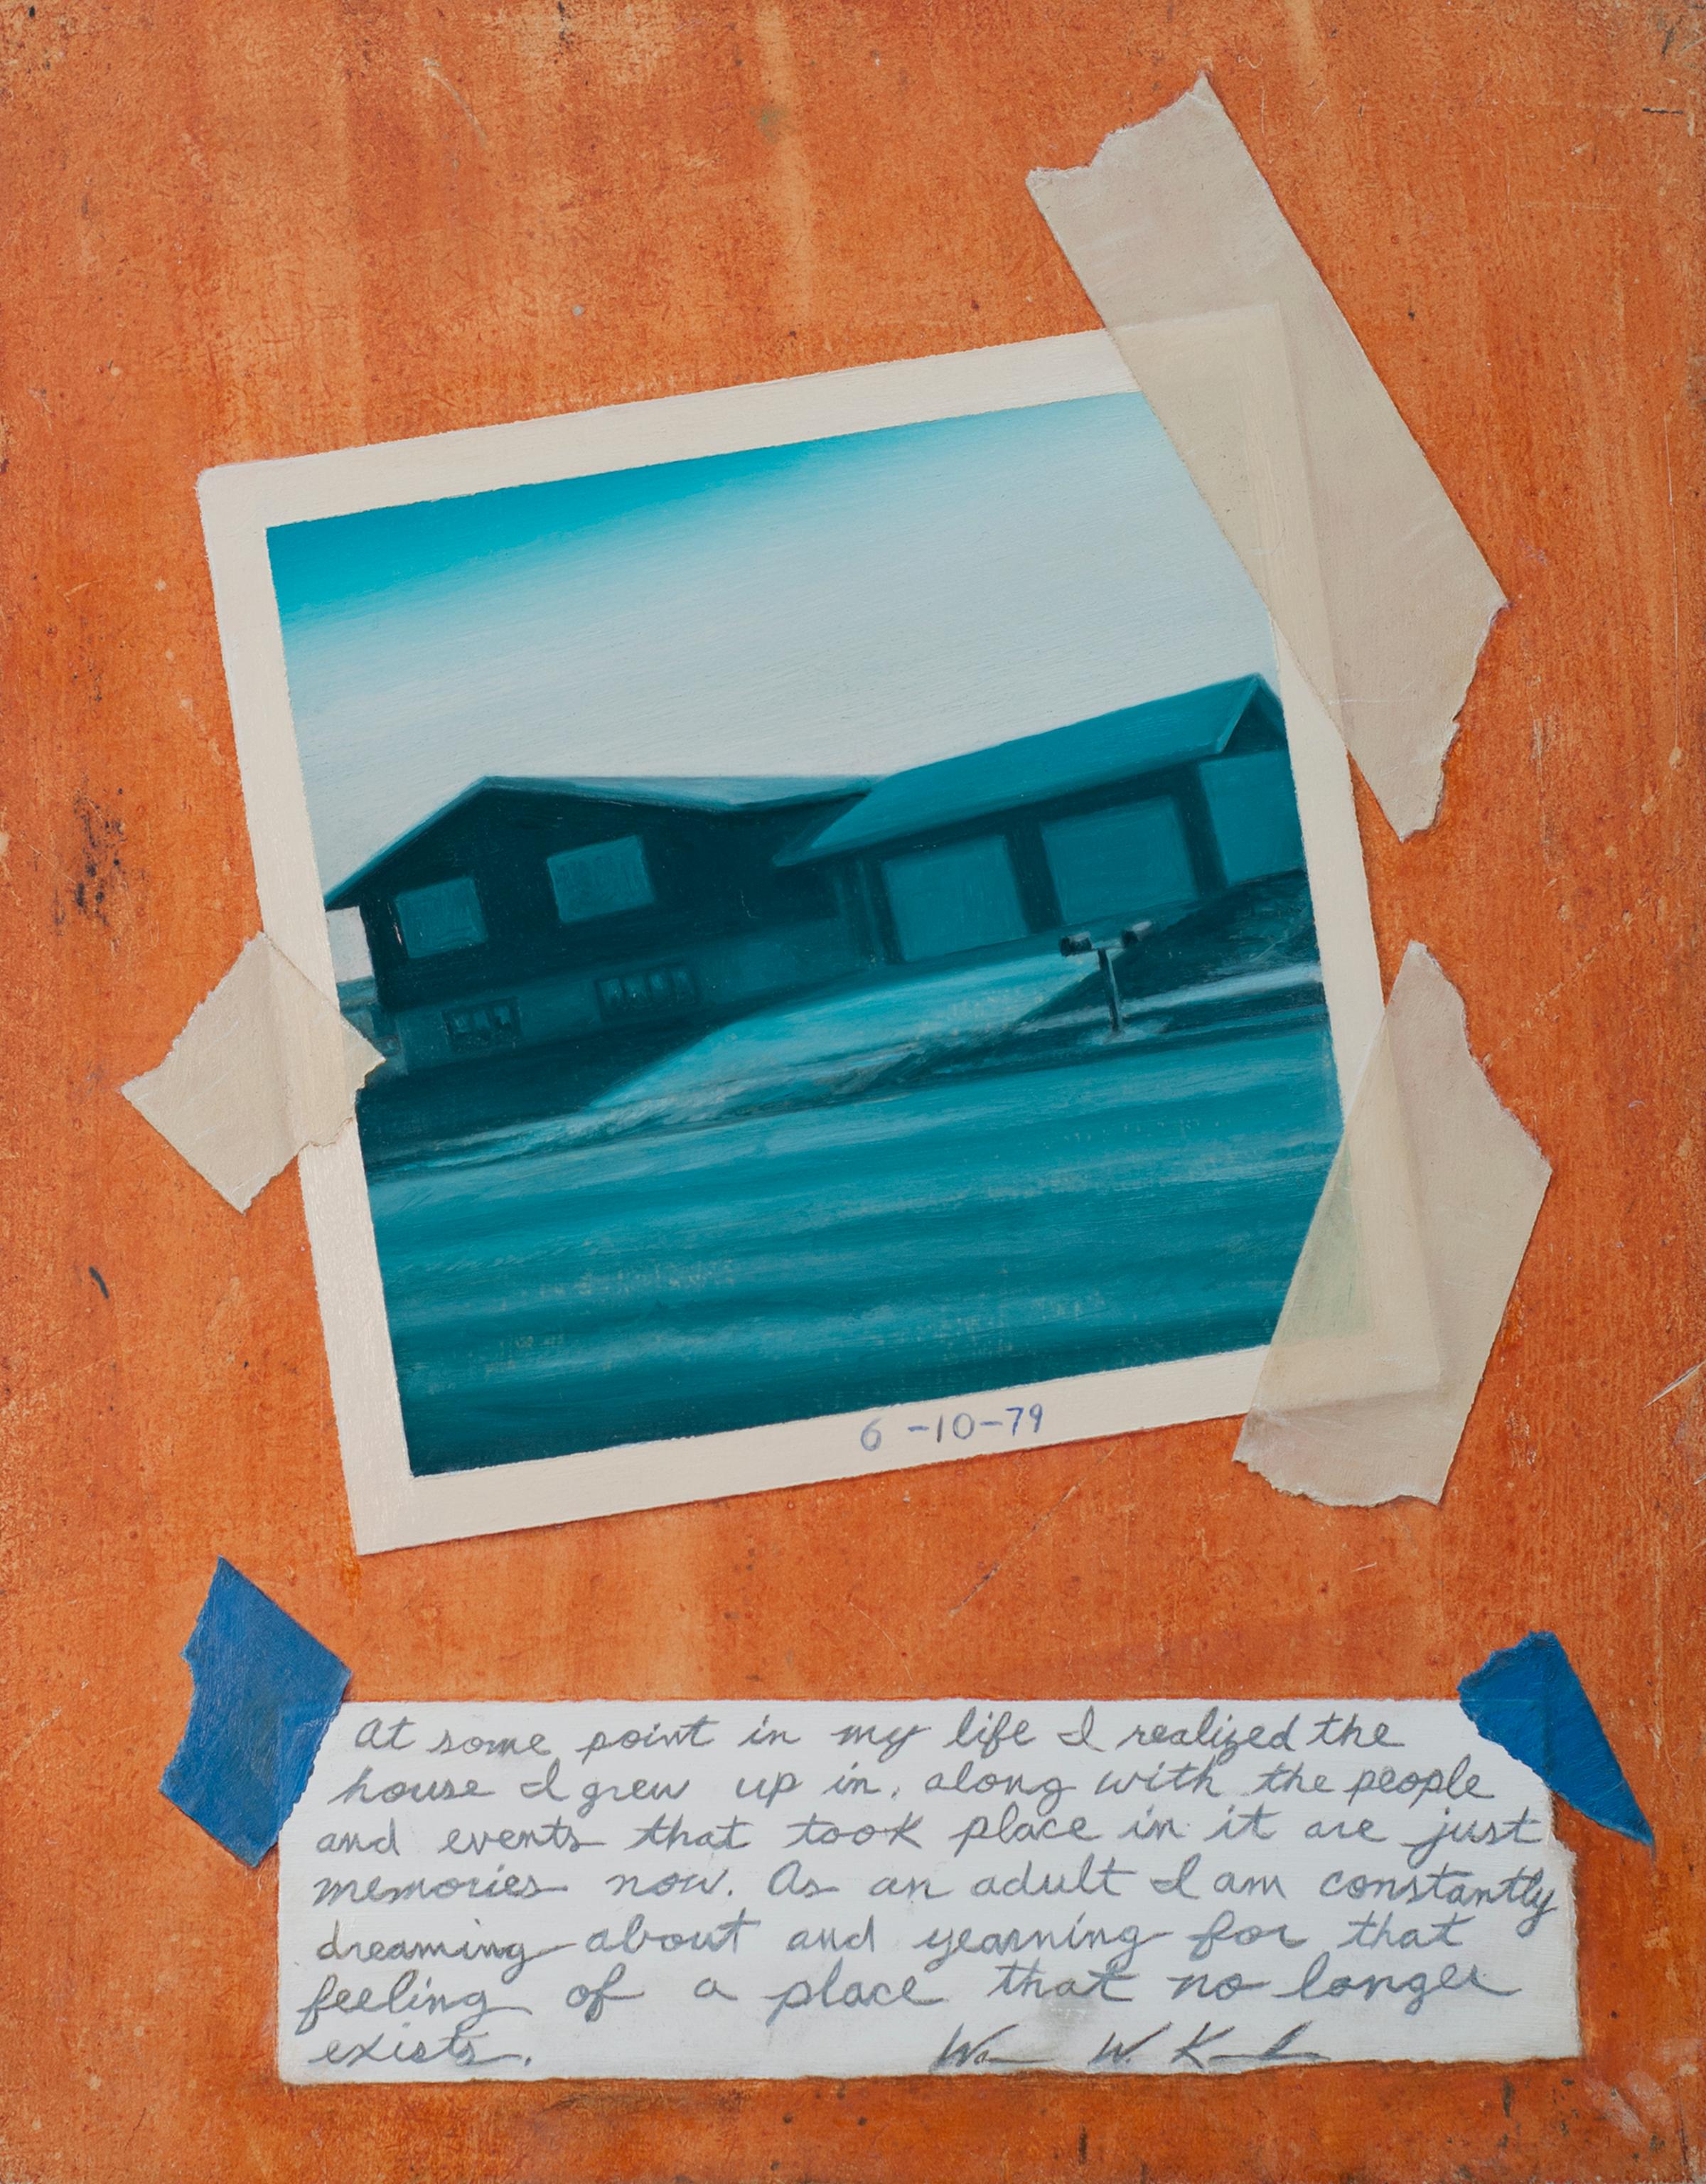 6-10-79
At some point in my life I realized the
house I grew up in, along with the people
and events that took place in it are just
memories now. As an adult I am constantly
dreaming about and yearning for that
feeling of a place that no longer
exists.
W. K